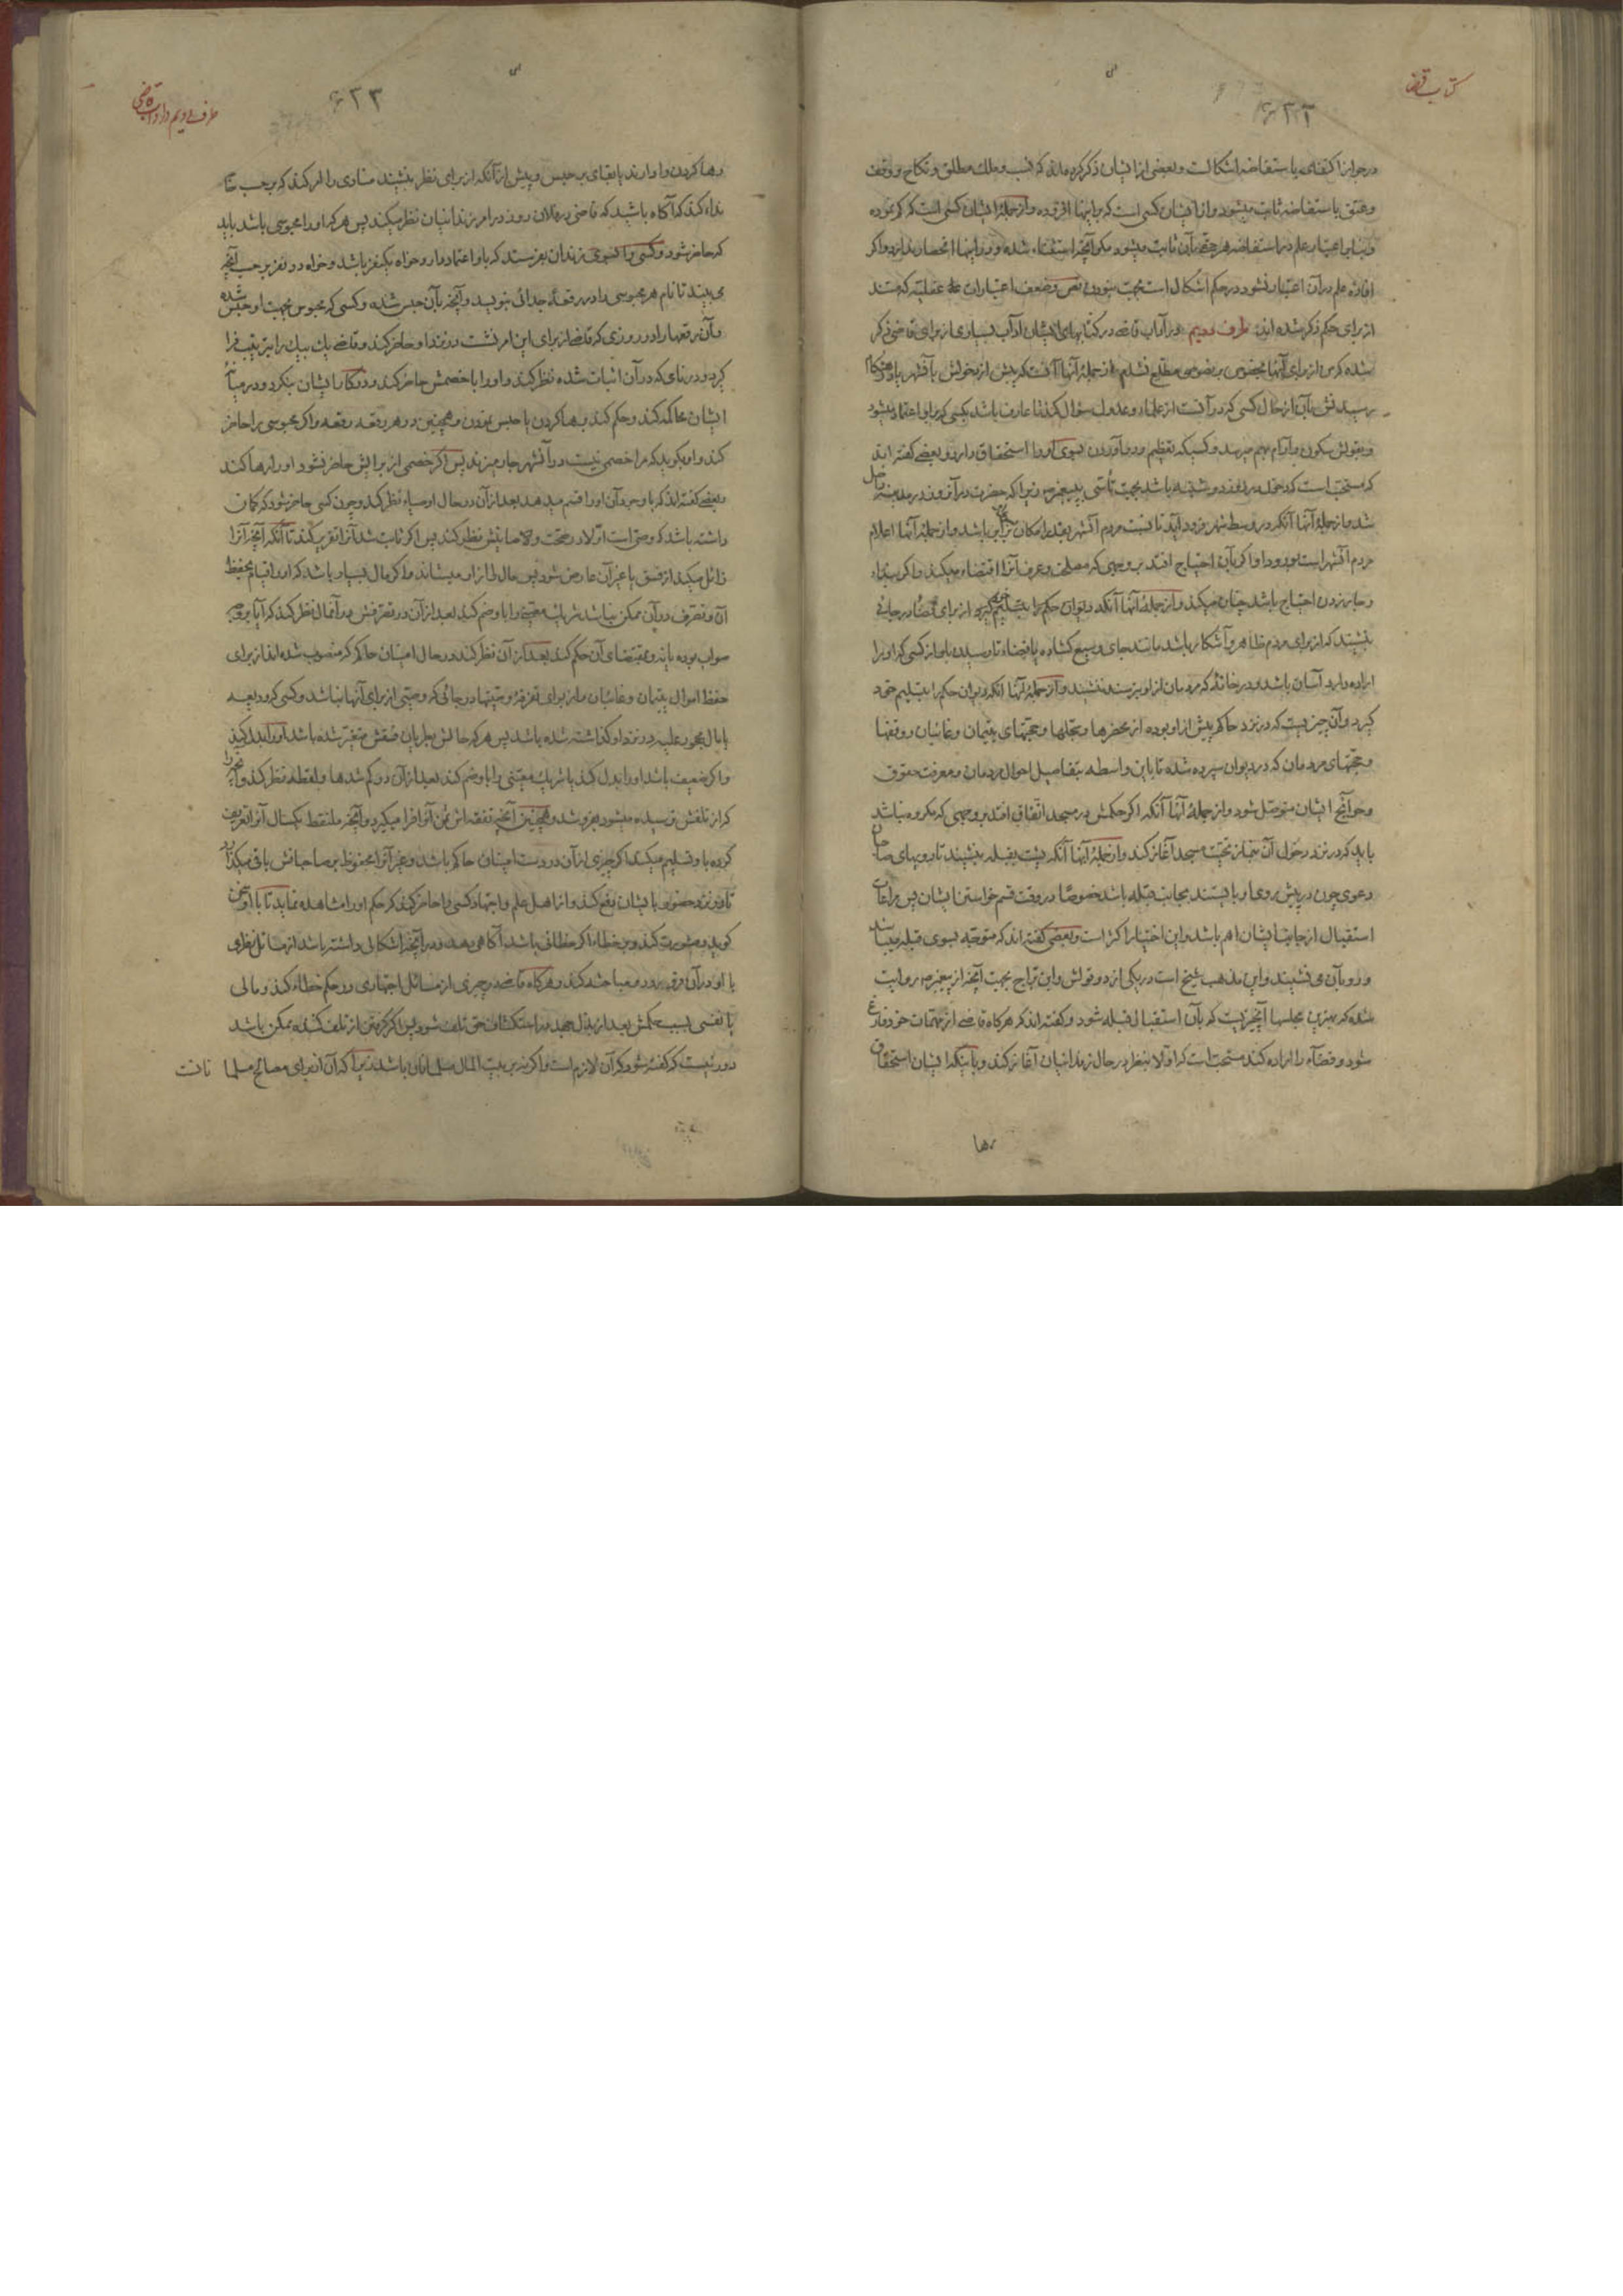 کتاب قضا
۶۲۲
در جواز اکتفای باستفاضه اشکالست و بعضی از ایشان ذکر کرده‌اند که نسب و ملک مطلق و نکاح و وقف
و عتق باستفاضه ثابت میشود و از ایشان کسی است که باینها افزوده و از جملۀ ایشان کسی است که کم نموده
و بنابر اعتبار علم در استفاضه هر حقی بآن ثابت میشود مگر آنچه استثناء شده و در اینها انحصار ندارد و اگر
افادۀ علم در آن اعتبار نشود در حکم اشکال است بجهت نبودن نص و ضعف اعتبارات عقلیه که مستند
از برای حکم ذکر شده‌اند طرف دویم در آداب قاضی در کتابهای ایشان آداب بسیاری از برای قاضی ذکر
شده که من از برای آنها بخصوص بر نصوصی مطلع نشدم از جملۀ آنها آنست که پیش از دخولش بآنشهر یا هنگام
رسیدنش بآن از حال کسی که در آنست از علماء و عدول سؤال کند تا عارف باشد بکسی که بر او اعتماد میشود
و بقولش سکون و آرام بهم میرسد و کسیکه تعظیم و رو آوردن بسوی او را استحقاق دارد و بعضی گفته‌اند
که مستحب است که دخولش در روز دوشنبه باشد بجهت تأسی به پیغمبر ص زیرا که حضرت در آنروز در مدینه داخل
شد و از جملۀ آنها آنکه در وسط شهر فرود آید تا نسبت مردم آنشهر بقدر امکان برابر باشد و از جملۀ آنها اعلام
مردم آنشهر است بورود او اگر بآن احتیاج افتد بر وجهی که مصلحت و عرف آنرا اقتضاء میکند و اگر بنداء
و جار زدن احتیاج باشد چنان میکند و از جملۀ آنها آنکه دیوان حکم را بتسلیم گیرد از برای قضا در جائی
بنشیند که از برای مردم ظاهر و آشکار باشد مانند جای وسیع گشاده یا فضاء تا رسیدن باو از کسی که او را
اراده دارد آسان باشد و در خانۀ که مردمان از او بترسند ننشیند و از جملۀ آنها آنکه دیوان حکم را بتسلیم خود
گیرد و آن چیزیست که در نزد حاکم پیش از او بوده از محضرها و سجلها و حجتهای یتیمان و غائبان و وقفها
و حجتهای مردمان که در دیوان سپرده شده تا باین واسطه بتفاصیل احوال مردمان و معرفت حقوق
و حوائج ایشان متوصل شود و از جملۀ آنها آنکه اگر حکمش در مسجد اتفاق افتد بر وجهی که مکروه نباشد
باید که در نزد دخول آن بنماز تحیت مسجد آغاز کند و از جملۀ آنها آنکه پشت بقبله بنشیند تا رویهای صاحبان
دعوی چون در پیش روی او بایستند بجانب قبله باشد خصوصًا در وقت قسم خواستن از ایشان پس مراعات
استقبال از جانب ایشان اهم باشد و این اختیار اکثر است و بعضی گفته‌اند که متوجه بسوی قبله میباشد
و رو بآن می‌نشیند و این مذهب شیخ است در یکی از دو قولش و این راجح بجهت آنچه از پیغمبر ص روایت
شده که بهترین مجلسها آنچیزیست که بآن استقبال قبله شود و گفته‌اند که هرگاه قاضی از مهمات خود فارغ
شود و قضاء را اراده کند مستحب است که اولا بنظر در حال زندانیان آغاز کند و باینکه ایشان استحقاق
رها
طرف دویم در آداب قاضی
۶۲۳
رها کردن را دارند یا بقای بر حبس و پیش از آنکه از برای نظر بنشیند منادی را امر کند که بر حسب
نداء کند که آگاه باشید که قاضی در فلان روز در امر زندانیان نظر میکند پس هر که او را محبوسی باشد باید
که حاضر شود و کسی را بسوی زندان بفرستد که باو اعتماد دارد خواه یکنفر باشد و خواه دو نفر بر حسب آنچه
می‌بیند تا نام هر محبوسی را در رقعۀ جدائی بنویسد و آنچه بآن حبس شده و کسی که محبوس بجهت او حبس شده
و آن رقعها را در روزی که قاضی از برای این امر نشست در نزد او حاضر کند و قاضی یک بیک را بترتیب فرا
گیرد و در نامی که در آن اثبات شده نظر کند و او را با خصمش حاضر کند و در کار ایشان بنگرد و در میانۀ
ایشان محاکمه کند و حکم کند برها کردن یا حبس نمودن و همچنین در هر رقعه رقعه و اگر محبوسی را حاضر
کند و او بگوید که مرا خصمی نیست در آنشهر جار میزند پس اگر خصمی از برایش حاضر نشود او را رها کند
و بعضی گفته‌اند که با وجود آن او را قسم میدهد بعد از آن در حال اوصیاء نظر کند و چون کسی حاضر شود که گمان
داشته باشد که وصی است اولا در صحت وصایتش نظر کند پس اگر ثابت شد آنرا تقریر کند تا آنکه آنچه آنرا
زائل میکند از فسق یا غیر آن عارض شود پس مال را از او میستاند و اگر مال بسیار باشد که او را قیام بحفظ
آن و تصرف در آن ممکن نباشد شریک معینی را با او ضم کند بعد از آن در تصرفش در آنمال نظر کند که آیا بر وجه
صواب بوده یا نه و بمقتضای آن حکم کند بعد از آن نظر کند در حال امینان حاکم که منصوب شده‌اند از برای
حفظ اموال یتیمان و غائبان و از برای تفرقۀ وصیتها در جائی که وصیی از برای آنها نباشد و کسی که ودیعه
یا مال محجور علیه در نزد او گذاشته شده باشد پس هر که حالش بطریان فسقش متغیر شده باشد او را بدل کند
و اگر ضعیف باشد او را بدل کند یا شریک معینی را با او ضم کند بعد از آن در گم شدها و لقطه نظر کند و آنچه را
که از تلفش ترسیده میشود بفروشد و همچنین آنچه نفقه‌اش ثمن آنرا فرا میگیرد و آنچه ملتقط یکسال آنرا تعریف
کرده باو تسلیم میکند اگر چیزی از آن در دست امینان حاکم باشد و غیر آنرا محفوظ بر صاحبانش باقی میگذارد
تا در نزد حضور بایشان دفع کند و از اهل علم و اجتهاد کسی را حاضر کند که حکم او را مشاهده نماید تا با او سخن
گوید و مشورت کند و بر خطاء اگر خطائی باشد آگاهی دهد و در آنچه اشکالی داشته باشد از مسائل نظری
با او در آن فرو رود و مباحثه کند و هرگاه قاضی در چیزی از مسائل اجتهادی در حکم خطاء کند و مالی
یا نفسی بسبب حکمش بعد از بذل جهد در استکشاف حق تلف شود پس اگر گرفتن از تلف کننده ممکن باشد
دور نیست که گفته شود که آن لازم است و اگر نه بر بیت المال مسلمانان باشد زیرا که آن از برای مصالح مسلمانانست